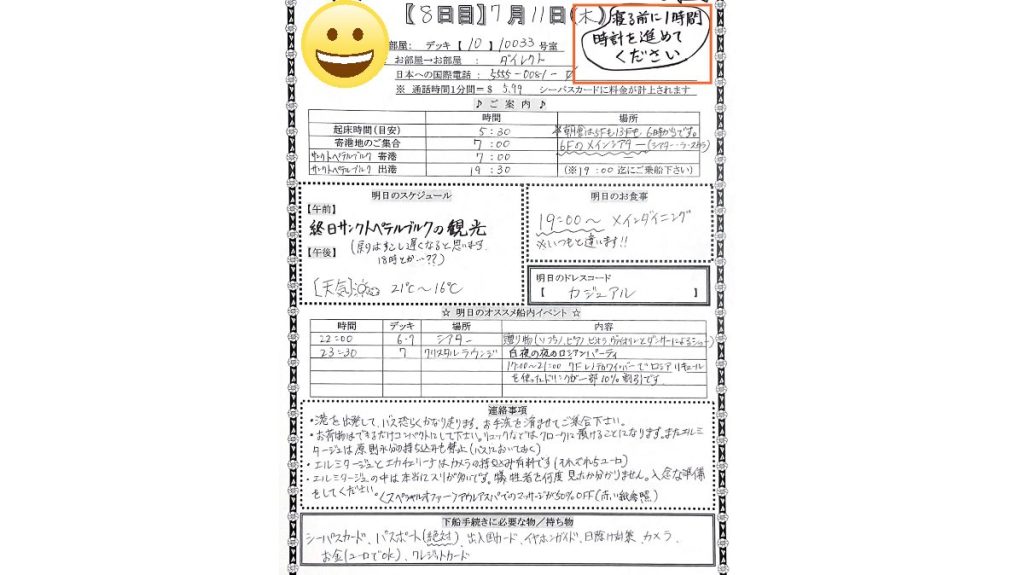 【8日目】7月11日(木)
寝る前に1時間
時計を進めて
ください
部屋: デッキ【10】10033号室
お部屋→お部屋 : ダイレクト
日本への国際電話 : 5555-0081-
※ 通話時間1分間=$ 5.99 シーパスカードに料金が計上されます
♪ ご 案 内 ♪
時間 場所
起床時間(目安) 5:30 ※朝食は5Fも13Fも 6時からです。
寄港地のご集合 7:00 6Fのメインシアター(シアター・ラ・スカラ)
サンクトペテルブルク 寄港 7:00
サンクトペテルブルク 出港 19:30 (※19:00 迄にご乗船下さい)
明日のスケジュール
【午前】
終日サンクトペテルブルクの観光
(戻りはすこし遅くなると思います。
【午後】 18時とか…??)
[天気] 21℃〜16℃
明日のお食事
19:00〜 メインダイニング
※いつもと違います!!
明日のドレスコード
【 カジュアル 】
☆ 明日のオススメ船内イベント ☆
時間 デッキ 場所 内容
22:00 6・7 シアター 贈り物(ソプラノ、ピアノ、ビオラ、ヴァイオリンとダンサーによるショー)
23:30 7 クリスタルラウンジ 白夜の夜のロシアンパーティ
17:00〜21:00 7F バーでロシアリキュール
を使ったドリンクが一部10%割引です
連絡事項
・港を出発して、バス恐らくかなり走ります。お手洗を済ませてご集合下さい。
・お荷物はできるだけコンパクトにして下さい。リュックなどはクロークに預けることになります。またエルミ
タージュは原則水分の持ち込みも禁止(バスにおいておく)
・エルミタージュとエカテリーナはカメラの持ち込み有料です(それぞれ5ユーロ)
・エルミタージュの中は本当にスリが多いです。犠牲者を何度見たか分かりません。入念な準備
をしてください。<スペシャルオファー>アクルアスパでのマッサージが50%OFF(赤い紙参照)
下船手続きに必要な物/持ち物
シーパスカード、パスポート(絶対)、出入国カード、イヤホンガイド、日除け対策、カメラ、
お金(ユーロでOK)、クレジットカード